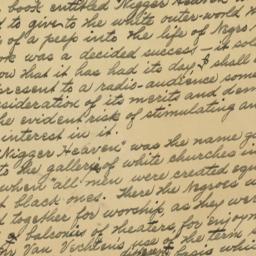 book entitled "Nigger Heaven"
to give to the white outer-world
of a peep into the life of Negro
ook was a decided success — it sold
you that it has had its day, I shall
present to a radio-audience some
sideration of its merits and dem
the evident risk of stimulating an
interest in it.
"Nigger Heaven" was the name ga
to the gallery of white churches in
when "all men were created equ
t black ones. There the Negroes w
d together for worship, as they wer
balconies of theaters, for enjoym
Mr Van Vechten's use of the term
basis whi